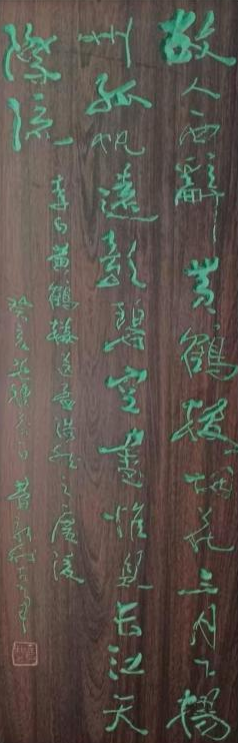 故人西辭黄鶴楼烟花三月下揚
州孤帆遠影碧空盡惟見长江天
際流
李白黄鶴楼送孟浩然之廣陵
癸亥